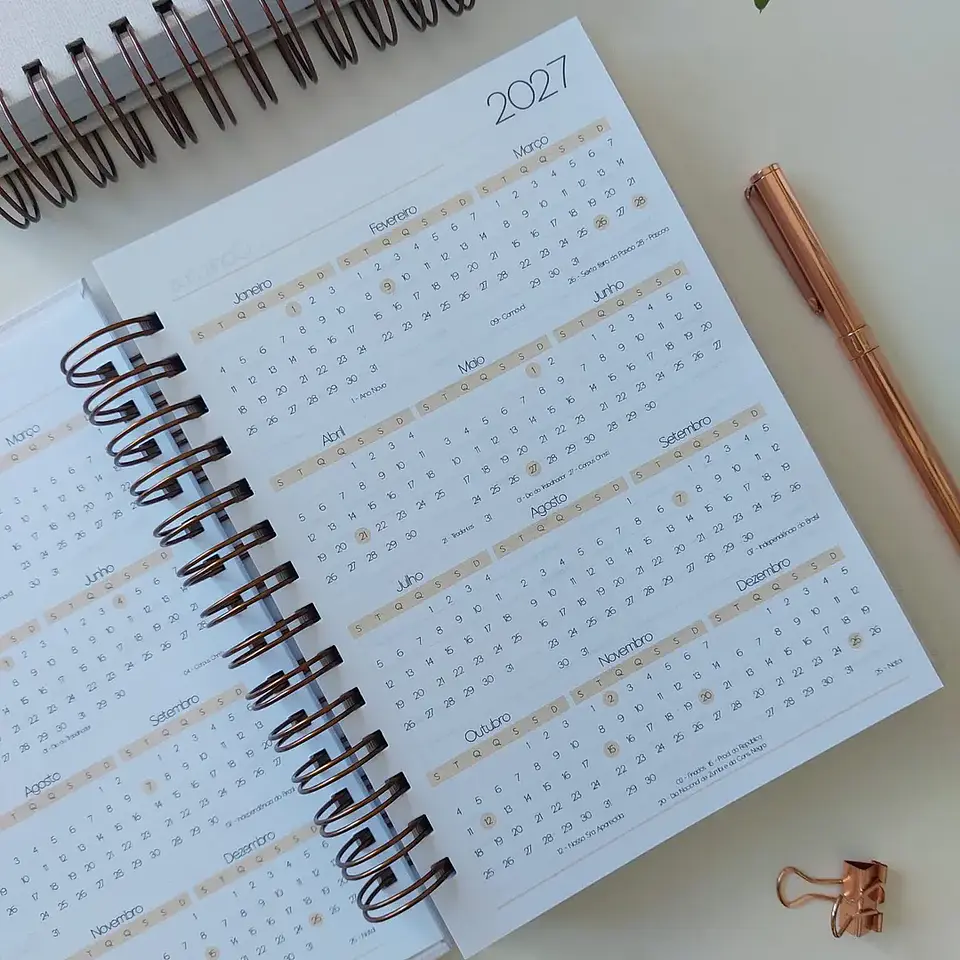 2027
Janeiro
S T Q Q S S D
1 2 3
4 5 6 7 8 9 10
11 12 13 14 15 16 17
18 19 20 21 22 23 24
25 26 27 28 29 30 31
1 - Ano Novo
Fevereiro
S T Q Q S S D
1 2 3 4 5 6 7
8 9 10 11 12 13 14
15 16 17 18 19 20 21
22 23 24 25 26 27 28
09 - Carnaval
Março
S T Q Q S S D
1 2 3 4 5 6 7
8 9 10 11 12 13 14
15 16 17 18 19 20 21
22 23 24 25 26 27 28
29 30 31
26 - Sexta feira da Paixão 28 - Páscoa
Abril
S T Q Q S S D
1 2 3 4
5 6 7 8 9 10 11
12 13 14 15 16 17 18
19 20 21 22 23 24 25
26 27 28 29 30
21 Tiradentes
Maio
S T Q Q S S D
1 2
3 4 5 6 7 8 9
10 11 12 13 14 15 16
17 18 19 20 21 22 23
24 25 26 27 28 29 30
31
01 - Dia do Trabalhador - 27 - Corpus Christi
Junho
S T Q Q S S D
1 2 3 4 5 6
7 8 9 10 11 12 13
14 15 16 17 18 19 20
21 22 23 24 25 26 27
28 29 30
Julho
S T Q Q S S D
1 2 3 4
5 6 7 8 9 10 11
12 13 14 15 16 17 18
19 20 21 22 23 24 25
26 27 28 29 30
Agosto
S T Q Q S S D
1
2 3 4 5 6 7 8
9 10 11 12 13 14 15
16 17 18 19 20 21 22
23 24 25 26 27 28 29
30 31
Setembro
S T Q Q S S D
1 2 3 4 5
6 7 8 9 10 11 12
13 14 15 16 17 18 19
20 21 22 23 24 25 26
27 28 29 30
07 - Independência do Brasil
Outubro
S T Q Q S S D
1 2 3
4 5 6 7 8 9 10
11 12 13 14 15 16 17
18 19 20 21 22 23 24
25 26 27 28 29 30 31
12 - Nossa Sra Aparecida
Novembro
S T Q Q S S D
1 2 3 4 5 6 7
8 9 10 11 12 13 14
15 16 17 18 19 20 21
22 23 24 25 26 27 28
29 30
02 - Finados 15 - Procl. da República
20 - Dia Nacional de Zumbi e da Cons. Negra
Dezembro
S T Q Q S S D
1 2 3 4 5
6 7 8 9 10 11 12
13 14 15 16 17 18 19
20 21 22 23 24 25 26
27 28 29 30 31
25 - Natal
Março
Junho
S T Q Q S S D
Setembro
S T Q Q S S D
07 - Independência do Brasil
Agosto
Dezembro
S T Q Q S S D
Novembro
S T Q Q S S D
25 - Natal